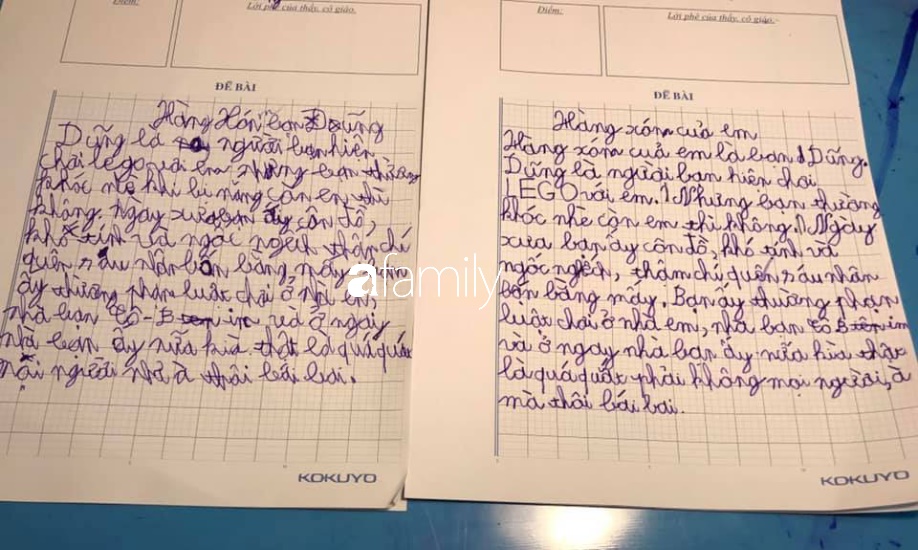 Lời phê của thầy, cô giáo.
ĐỀ BÀI
Hàng Hón bạn Dũng
Dũng là người bạn hiên
chơi lego với em nhưng bạn thường
khóc nhè khi bị mắng còn em thì
không. Ngày xưa bạn ấy côn đồ,
khó tính và ngốc nghếch thậm chí
quên sáu nhân bốn bằng mấy.
ấy thường phạn luật chơi ở nhà em,
nhà bạn và ở ngay
nhà bạn ấy nữa kìa thật là quá quắt
mọi người nhỉ à thôi bái bai.
KOKUYO
Điểm:
Lời phê của thầy, cô giáo.
ĐỀ BÀI
Hàng xóm của em
Hàng xóm cuả em là bạn Dũng.
Dũng là người bạn hiên chơi
LEGO với em. Nhưng bạn thường
khóc nhè còn em thì không. Ngày
xưa bạn ấy côn đồ, khó tính và
ngốc nghếch, thậm chí quên sáu nhân
bốn bằng mấy. Bạn ấy thường phạn
luật chơi ở nhà em, nhà bạn
và ở ngay nhà bạn ấy nữa kìa thật
là quá quắt phải không mọi người, à
mà thôi bái bai.
KOKUYO
afamily